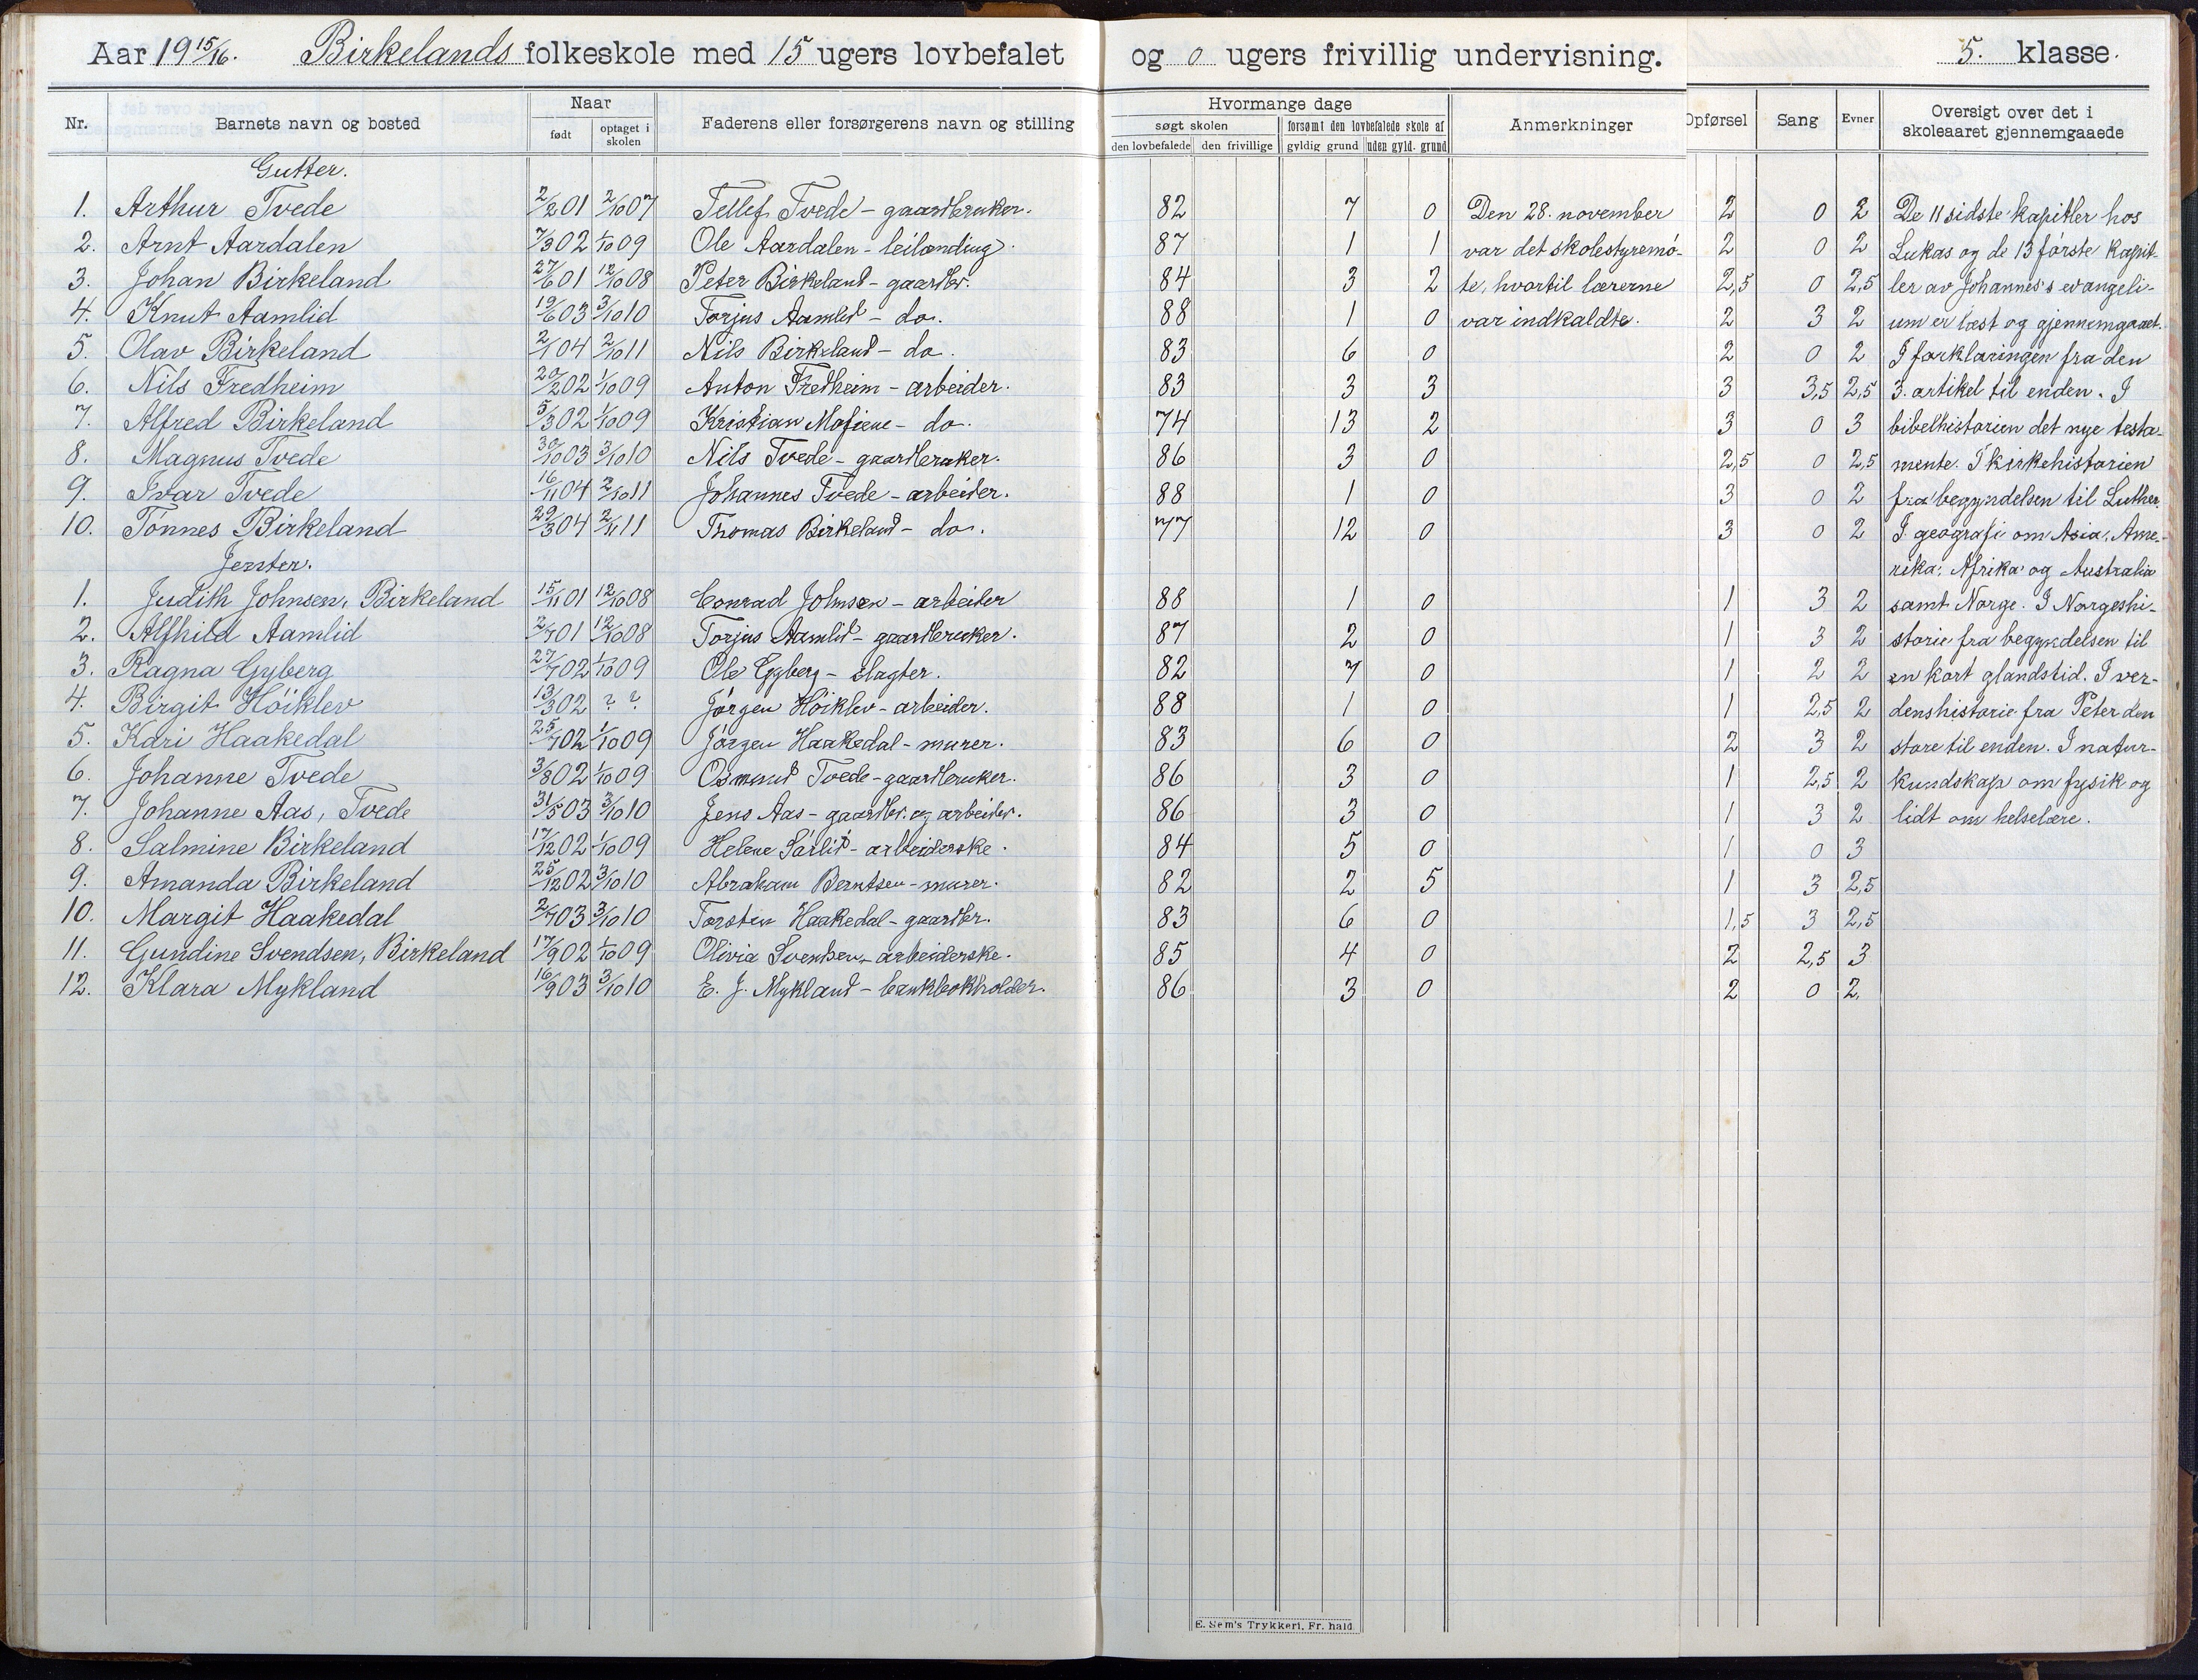 Aar 19 15/16. Birkelands folkeskole med 15 ugers lovbefalet og 0 ugers frivillig undervisning. 5. klasse.
Nr. Barnets navn og bosted Naar født optaget i skolen Faderens eller forsørgerens navn og stilling Hvormange dage søgt skolen den lovbefalede den frivillige forsømt den lovbefalede skole af gyldig grund uden gyld. grund Anmerkninger Opførsel Sang Evner Oversigt over det i skoleaaret gjennemgaaede
Gutter.
1. Arthur Tvede 2/2 01 2/10 07 Tellef Tvede - gaardbruker. 82 7 0 Den 28. november 2 0 2 De 11 sidste kapitler hos
2. Arnt Aardalen 7/3 02 1/10 09 Ole Aardalen - leilænding. 87 1 1 var det skolestyremö- 2 0 2 Lukas og de 13 förste kapit-
3. Johan Birkeland 27/6 01 12/10 08 Peter Birkeland - gaardbr. 84 3 2 te, hvortil lærerne 2,5 0 2,5 ler av Johannes's evangeli-
4. Knut Aamlid 19/6 03 3/10 10 Torjus Aamlid - do. 88 1 0 var indkaldte. 2 3 2 um er læst og gjennemgaaet.
5. Olav Birkeland 2/1 04 2/10 11 Nils Birkeland - do. 83 6 0 2 0 2 I forklaringen fra den
6. Nils Fredheim 20/2 02 1/10 09 Anton Fredheim - arbeider. 83 3 3 3 3,5 2,5 3. artikel til enden. I
7. Alfred Birkeland 5/3 02 1/10 09 Kristian Mofiene - do. 74 13 2 3 0 3 bibelhistorien det nye testa-
8. Magnus Tvede 30/10 03 3/10 10 Nils Tvede - gaardbruker. 86 3 0 2,5 0 2,5 mente. I kirkehistorien
9. Ivar Tvede 16/11 04 2/10 11 Johannes Tvede - arbeider. 88 1 0 3 0 2 fra begyndelsen til Luther.
10. Tönnes Birkeland 29/3 04 2/11 11 Thomas Birkeland - do. 77 12 0 3 0 2 I geografi om Asia, Ame-
Jenter. rika, Afrika og Australia
1. Judith Johnsen, Birkeland 15/11 01 12/10 08 Conrad Johnsen - arbeider 88 1 0 1 3 2 samt Norge. I Norgeshi-
2. Alfhild Aamlid 2/7 01 12/10 08 Torjus Aamlid - gaardbruker. 87 2 0 1 3 2 storie fra begyndelsen til
3. Ragna Gyberg 27/7 02 1/10 09 Ole Gyberg - slagter. 82 7 0 1 2 2 en kort glandstid. I ver-
4. Birgit Höiklev 13/3 02 ? ? Jörgen Höiklev - arbeider. 88 1 0 1 2,5 2 denshistorie fra Peter den
5. Kari Haakedal 25/7 02 1/10 09 Jörgen Haakedal - murer. 83 6 0 2 3 2 store til enden. I natur-
6. Johanne Tvede 3/8 02 1/10 09 Osmund Tvede - gaardbruker. 86 3 0 1 2,5 2 kundskap om fysik og
7. Johanne Aas, Tvede 31/5 03 3/10 10 Jens Aas - gaardbr. og arbeider. 86 3 0 1 3 2 lidt om helselære.
8. Salmine Birkeland 17/12 02 1/10 09 Helene Sörlid - arbeiderske. 84 5 0 1 0 3
9. Amanda Birkeland 25/12 02 3/10 10 Abraham Berntsen - murer. 82 2 5 1 3 2,5
10. Margit Haakedal 2/7 03 3/10 10 Torsten Haakedal - gaardbr. 83 6 0 1,5 3 2,5
11. Gundine Svendsen, Birkeland 17/9 02 1/10 09 Olivia Svendsen - arbeiderske. 85 4 0 2 2,5 3
12. Klara Mykland 16/9 03 3/10 10 E. J. Mykland - bankbokholder. 86 3 0 2 0 2.
E. Sem's Trykkeri, Fr. hald.